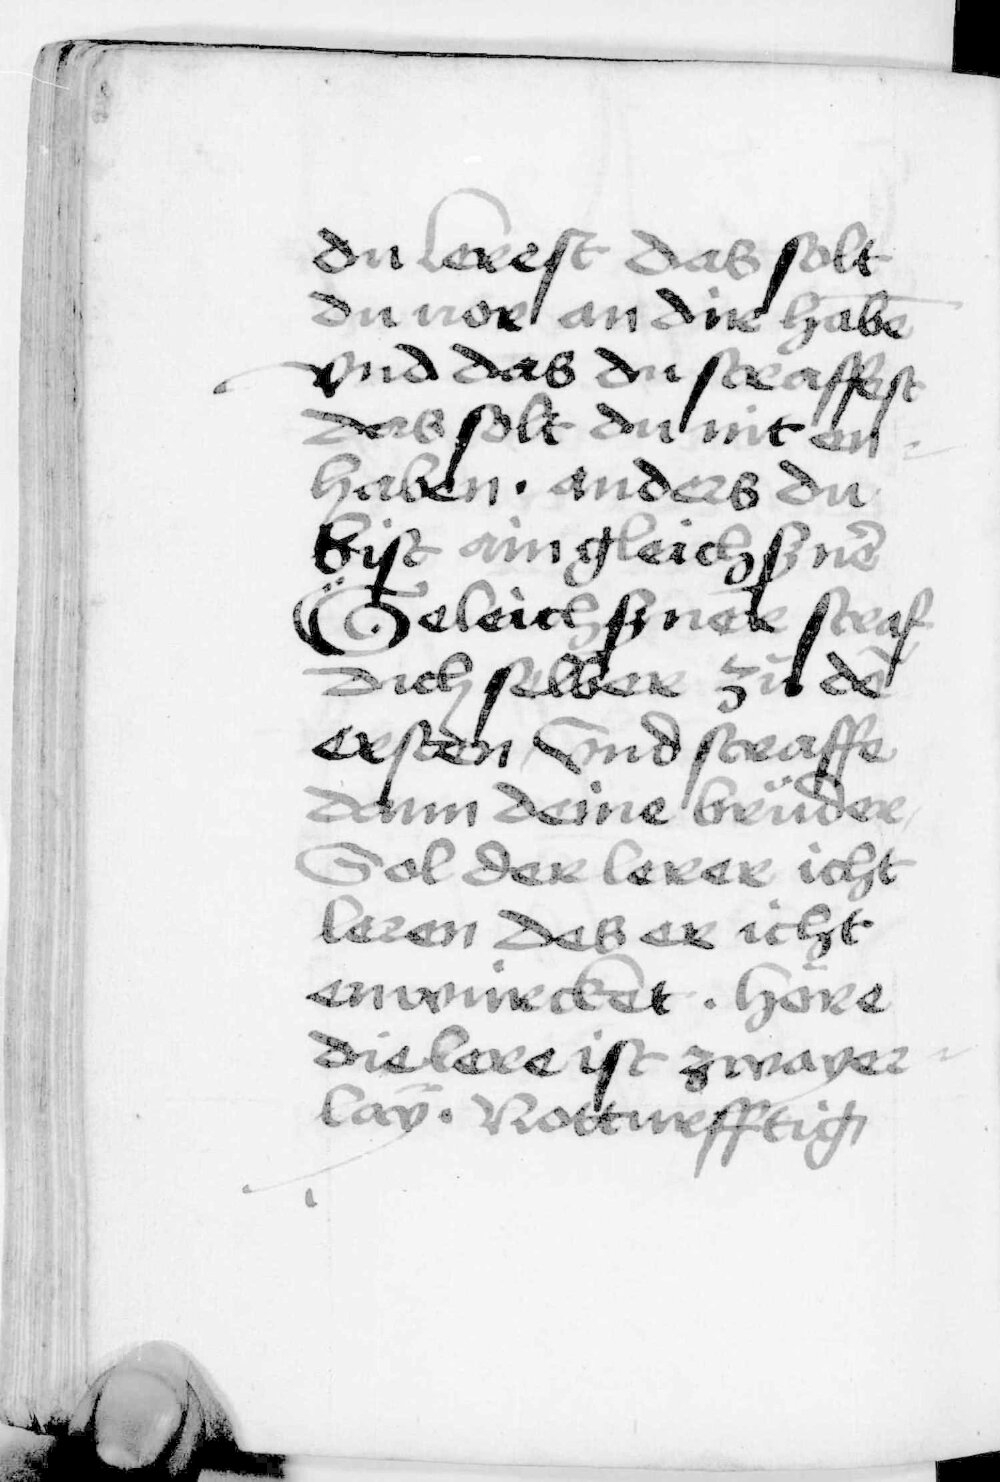 du lerest das solt
du vor an dir habē
vnd das du straffest
das solt du nit en-
haben · anders du
bist ain gleichßnē
Geleichßner straf
dich selber zů dē
ersten vnd straffe
dann deine brüder
Sol der lerer icht
leren des er icht
enwürcket · höre
die lere ist zwayer-
laÿ · Notturfftig